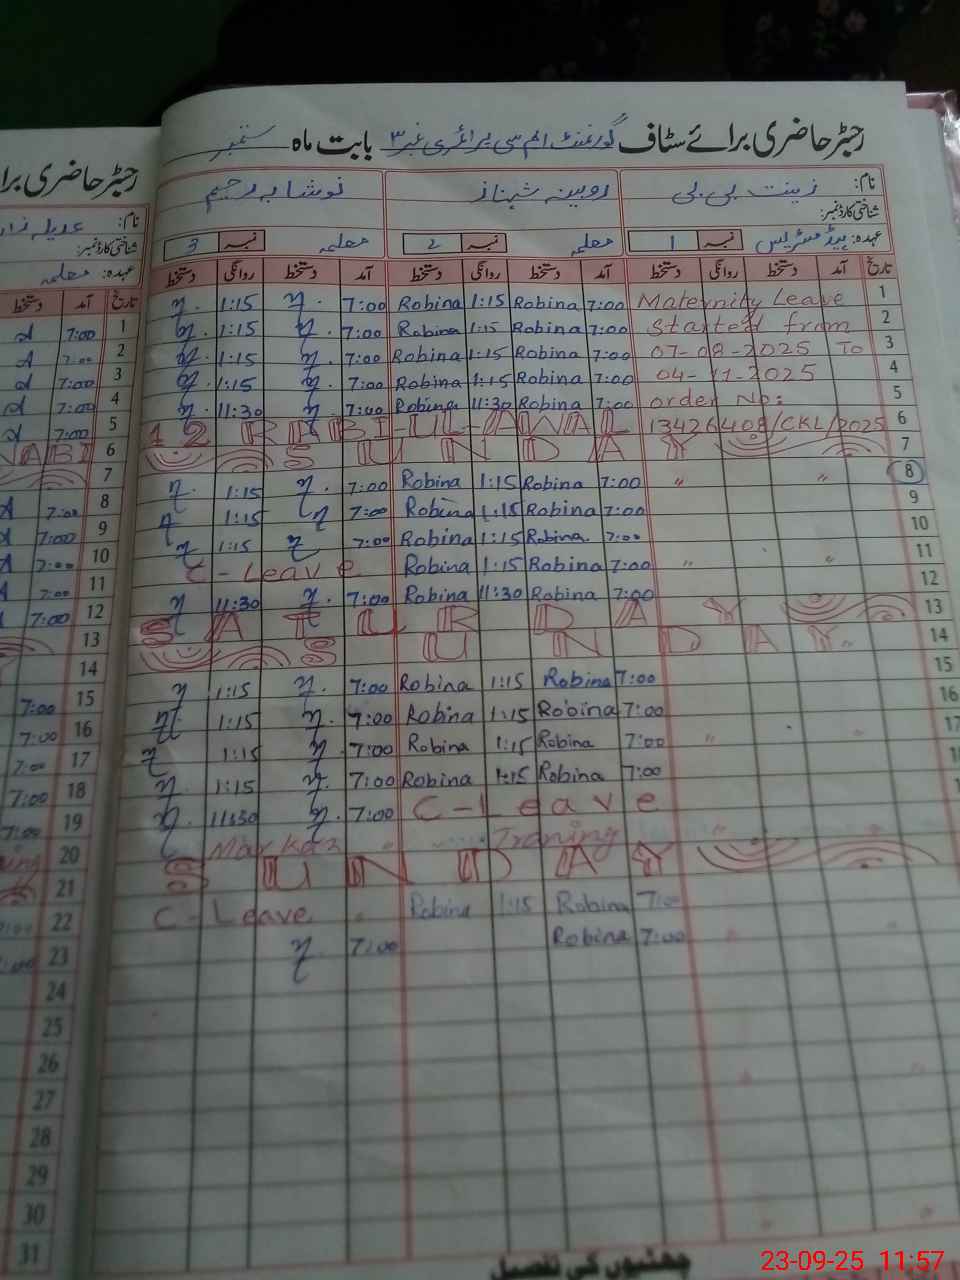 رجسٹر حاضری برائے سٹاف گورنمنٹ ایم سی پرائمری نمبر ۳ بابت ماہ ستمبر
نام: زینت بی بی روبینہ شہناز نوشابہ رحیم
شناختی کارڈ نمبر:
عہدہ: ہیڈ مسٹریس نمبر 1 معلمہ نمبر 2 معلمہ نمبر 3
تاریخ آمد دستخط روانگی دستخط آمد دستخط روانگی دستخط آمد دستخط روانگی دستخط
1:15 7:00 Robina 1:15 Robina 7:00 Maternity Leave 1
1:15 7:00 Robina 1:15 Robina 7:00 Started from 2
1:15 7:00 Robina 1:15 Robina 7:00 07-08-2025 To 3
1:15 7:00 Robina 1:15 Robina 7:00 04-11-2025 4
11:30 7:00 Robina 11:30 Robina 7:00 order No: 5
12 RABI-UL-AWAL 13426408/CKL/2025 6
SUNDAY 7
1:15 7:00 Robina 1:15 Robina 7:00 " " 8
1:15 7:00 Robina 1:15 Robina 7:00 9
1:15 7:00 Robina 1:15 Robina 7:00 10
C-Leave Robina 1:15 Robina 7:00 " " 11
11:30 7:00 Robina 11:30 Robina 7:00 12
SATURDAY 13
SUNDAY 14
1:15 7:00 Robina 1:15 Robina 7:00 15
1:15 7:00 Robina 1:15 Robina 7:00 16
1:15 7:00 Robina 1:15 Robina 7:00 " " 17
1:15 7:00 Robina 1:15 Robina 7:00
11:30 7:00 C-Leave
Markaz Traning
SUNDAY
C-Leave Robina 1:15 Robina 7:00
7:00 Robina 7:00
رجسٹر حاضری برا
نام:
شناختی کارڈ نمبر:
عہدہ: معلمہ
تاریخ آمد دستخط
7:00 1
7:00 2
7:00 3
7:00 4
7:00 5
NABI 6
7
7:00 8
7:00 9
7:00 10
7:00 11
7:00 12
13
14
7:00 15
7:00 16
7:00 17
7:00 18
7:00 19
20
21
22
23
24
25
26
27
28
29
30
31
چھٹیوں کی تفصیل
23-09-25 11:57